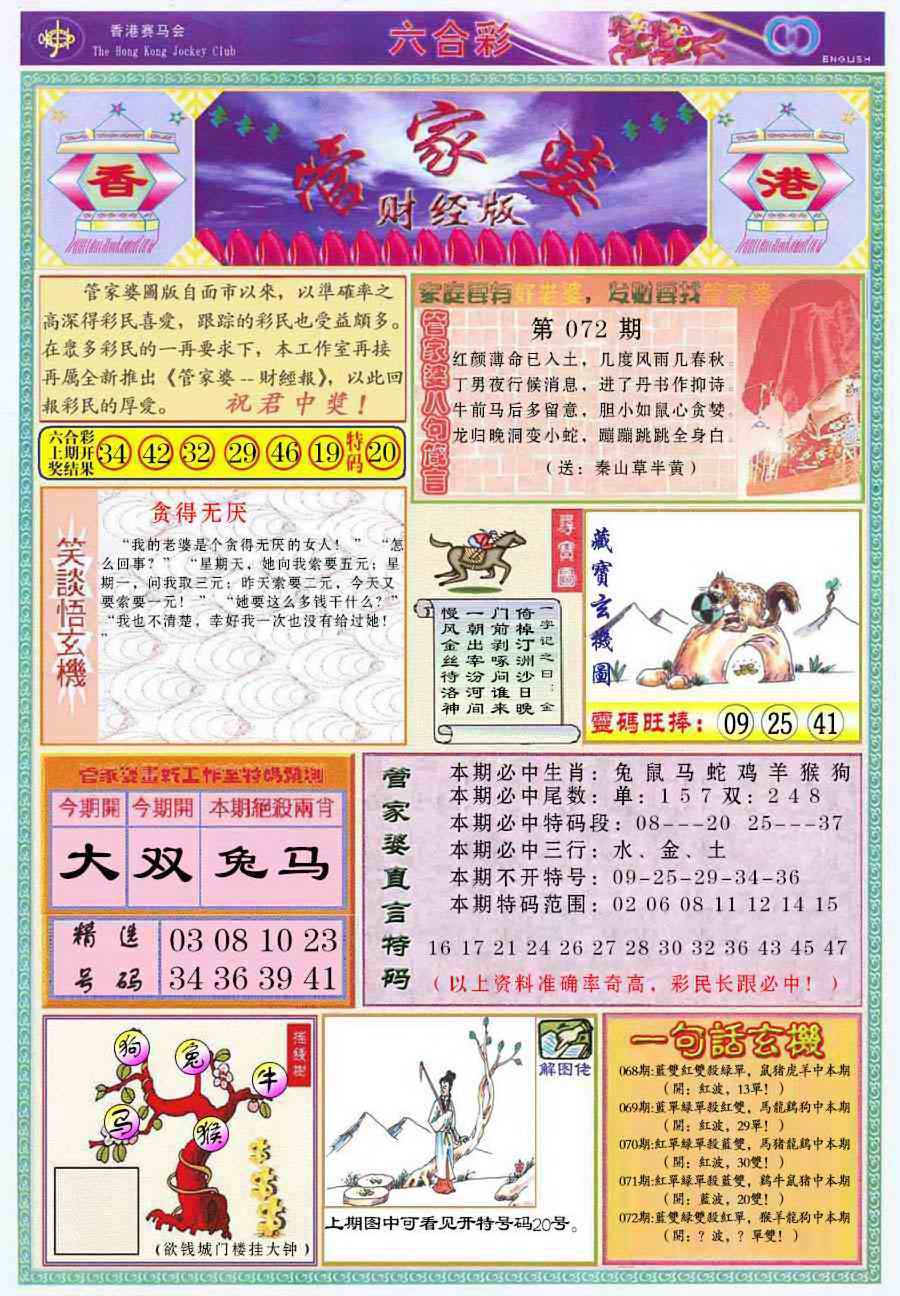 香港赛马会
The Hong Kong Jockey Club
六合彩
ENGLISH
香
管家婆
财经版
港
管家婆圖版自面市以來，以準確率之
高深得彩民喜爱，跟踪的彩民也受益頗多。
在衆多彩民的一再要求下，本工作室再接
再厲全新推出《管家婆--財經報》，以此回
報彩民的厚愛。 祝君中奬！
六合彩
上期开
奖结果
34 42 32 29 46 19 特码 20
家庭要有好老婆，发财要找管家婆
管家婆八句箴言
第 072 期
红颜薄命已入土，几度风雨几春秋。
丁男夜行候消息，进了丹书作抑诗。
牛前马后多留意，胆小如鼠心贪婪。
龙归晚洞变小蛇，蹦蹦跳跳全身白。
（送：秦山草半黄）
笑談悟玄機
贪得无厌
“我的老婆是个贪得无厌的女人！” “怎
么回事？” “星期天，她向我索要五元；星
期一，问我取三元；昨天索要二元，今天又
要索要一元！” “她要这么多钱干什么？”
“我也不清楚，幸好我一次也没有给过她！
”
尋寶圖
一字记之曰：金
倚棹汀洲沙日晚
门前剥啄问谁来
一朝出宰汾河间
慢风金丝待洛神
藏寳玄機圖
靈碼旺捧： 09 25 41
管家婆畫新工作室特碼預測
今期開 今期開 本期絕殺兩肖
大 双 兔马
精选
号码
03 08 10 23
34 36 39 41
管家婆直言特码
本期必中生肖：兔鼠马蛇鸡羊猴狗
本期必中尾数：单：157双：248
本期必中特码段：08---20 25---37
本期必中三行：水、金、土
本期不开特号：09-25-29-34-36
本期特码范围：02 06 08 11 12 14 15
16 17 21 24 26 27 28 30 32 36 43 45 47
（以上资料准确率奇高，彩民长跟必中！）
摇錢樹
狗
兔
牛
马
猴
（欲钱城门楼挂大钟）
解图佬
上期图中可看见开特号码20号。
一句話玄機
068期:藍雙紅雙殺綠單，鼠猪虎羊中本期
（開：紅波，13單！）
069期:藍單綠單殺紅雙，馬龍鷄狗中本期
（開：紅波，29單！）
070期:紅單綠單殺藍雙，馬猪龍鷄中本期
（開：紅波，30雙！）
071期:紅單綠單殺藍雙，鷄牛鼠猪中本期
（開：藍波，20雙！）
072期:藍雙綠雙殺紅單，猴羊龍狗中本期
（開：？波，？單雙！）